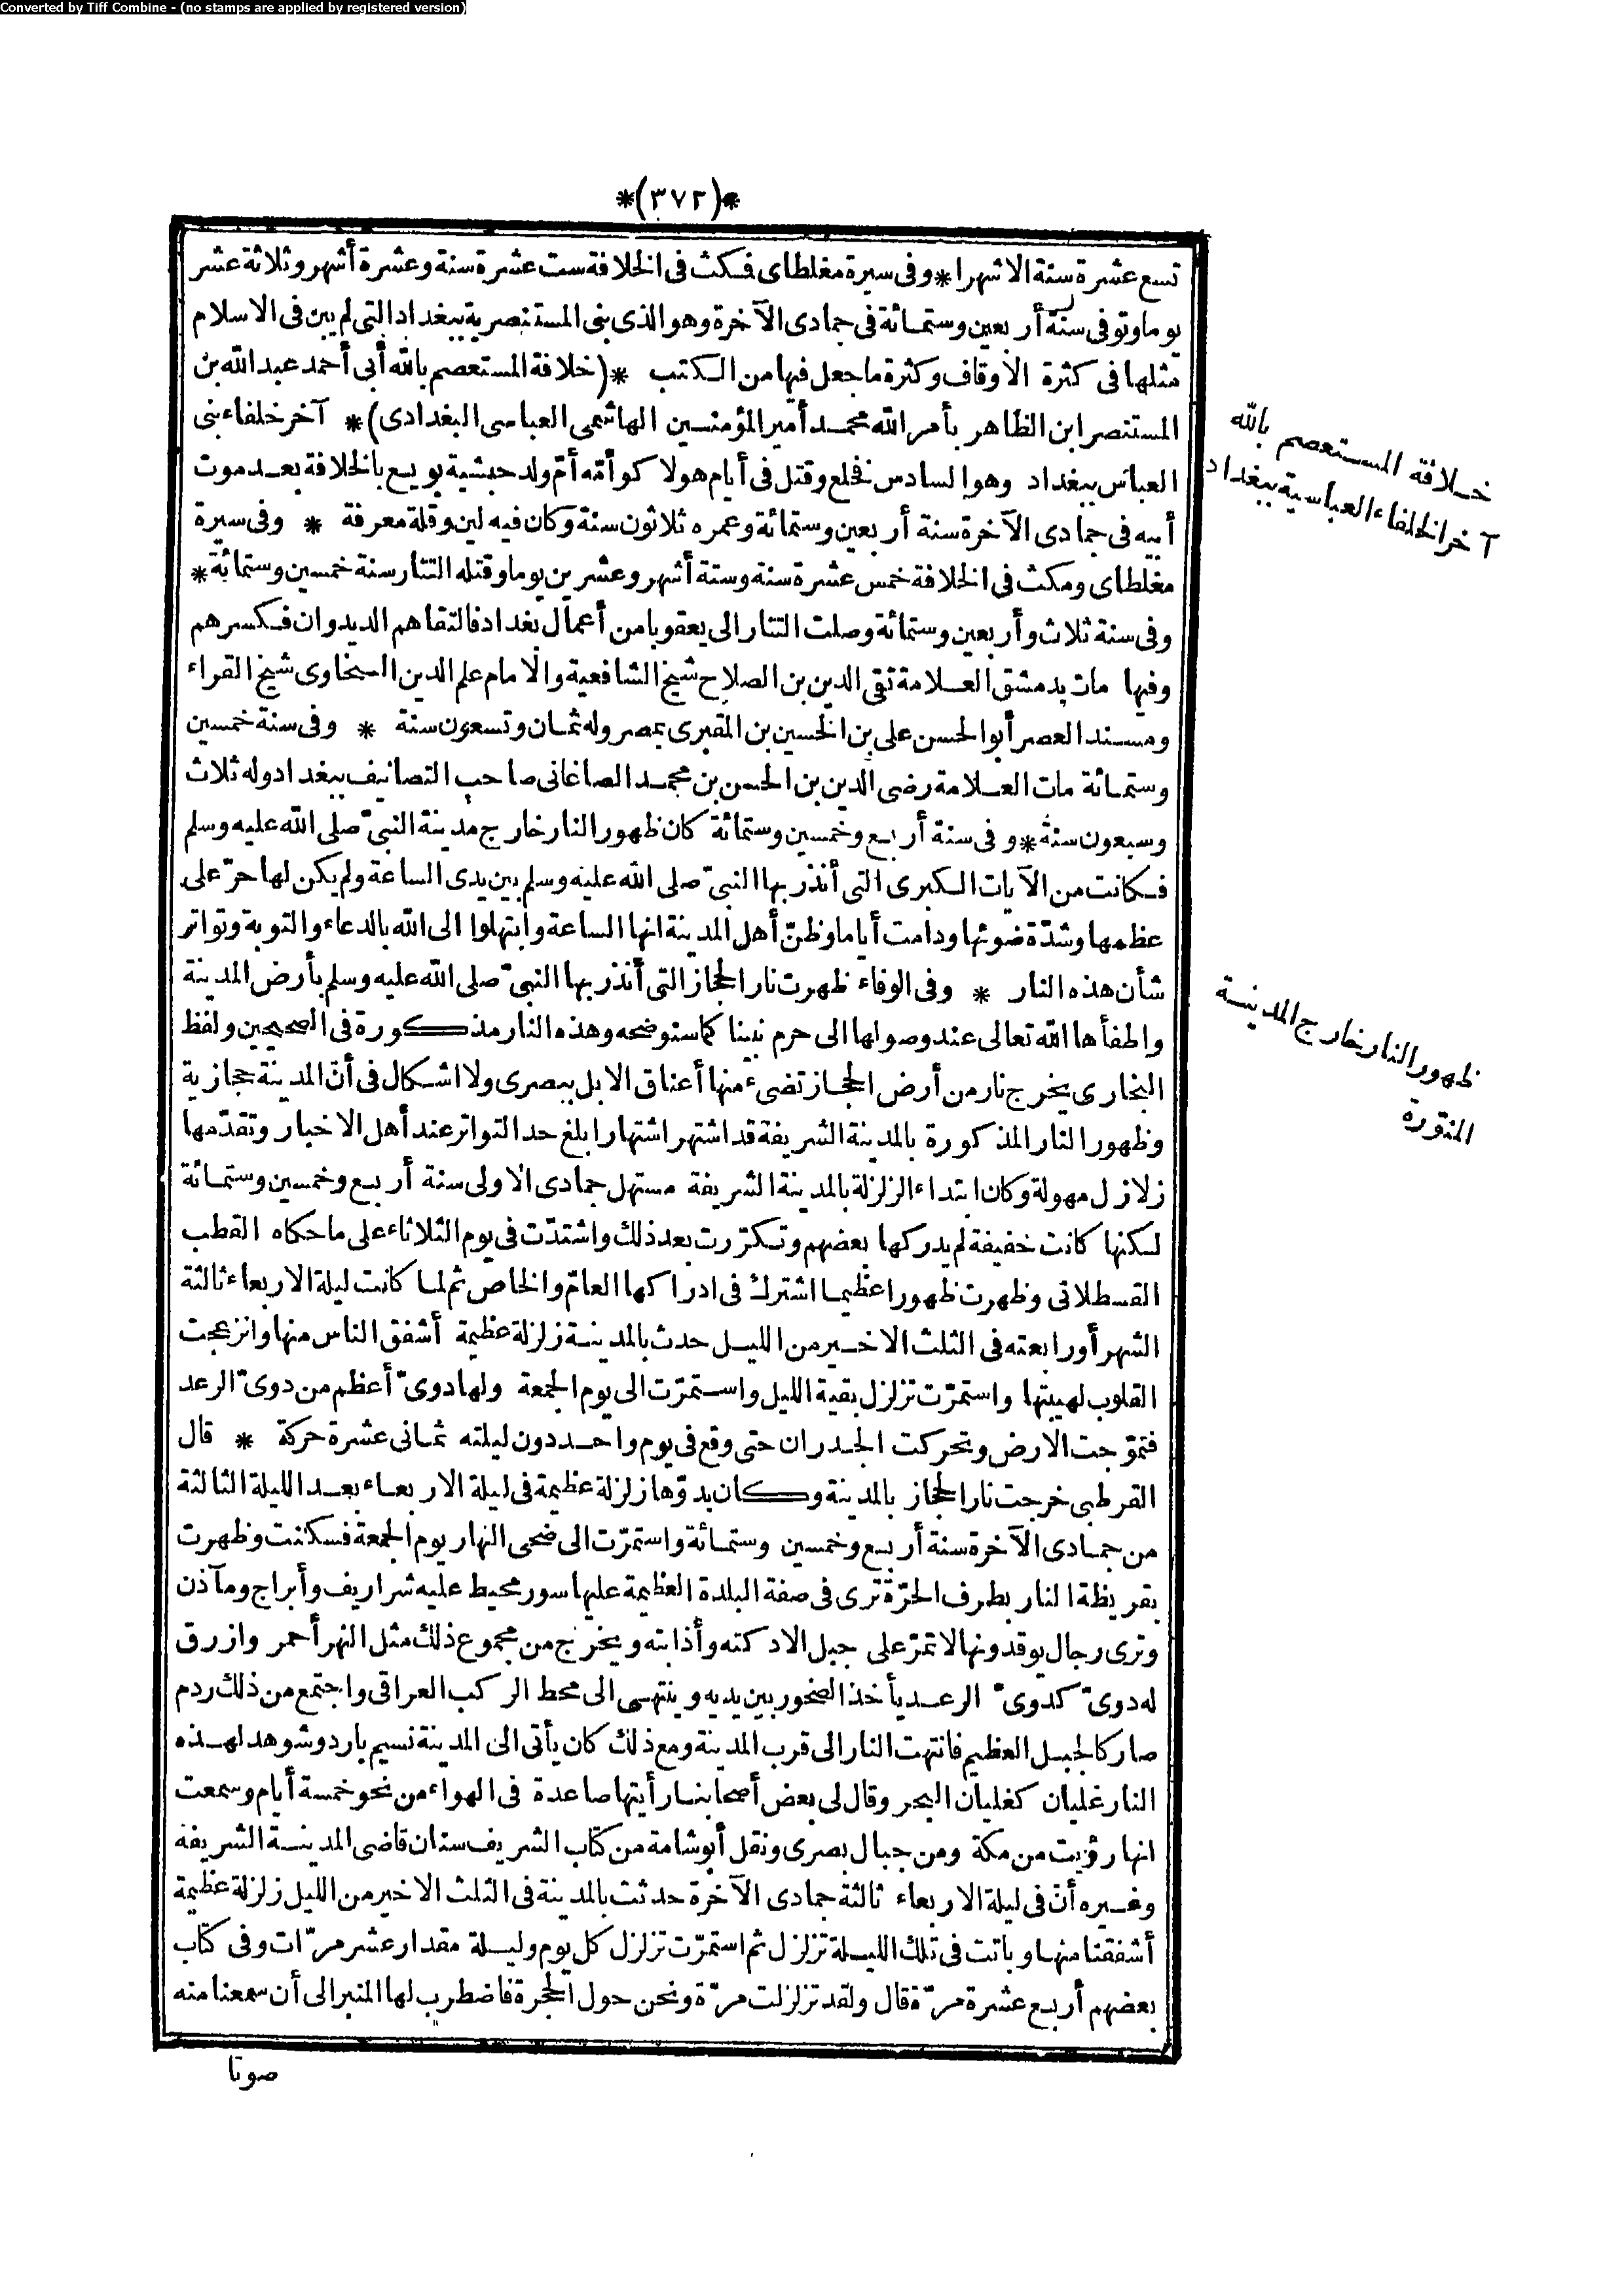 Converted by Tiff Combine - (no stamps are applied by registered version)
*(٣٧٢)*
تسع عشرة سنة الا شهرا * وفى سيرة مغلطاى فمكث فى الخلافة ست عشرة سنة وعشرة أشهر وثلاثة عشر
يوما وتوفى سنة أربعين وستمائة فى جمادى الآخرة وهو الذى بنى المستنصرية ببغداد التى لم يبن فى الاسلام
مثلها فى كثرة الأوقاف وكثرة ما جعل فيها من الكتب * (خلافة المستعصم بالله أبى أحمد عبد الله بن
المستنصر ابن الظاهر بأمر الله محمد أمير المؤمنين الهاشمى العباسى البغدادى) * آخر خلفاء بنى
العباس ببغداد وهو السادس فخلع وقتل فى أيام هولاكو أمّه أمّ ولد حبشية بويع بالخلافة بعد موت
أبيه فى جمادى الآخرة سنة أربعين وستمائة وعمره ثلاثون سنة وكان فيه لين وقلة معرفة * وفى سيرة
مغلطاى ومكث فى الخلافة خمس عشرة سنة وستة أشهر وعشرين يوما وقتله التتار سنة خمسين وستمائة *
وفى سنة ثلاث وأربعين وستمائة وصلت التتار الى يعقوبا من أعمال بغداد فالتقاهم الديدوان فكسرهم
وفيها مات بدمشق العلامة تقى الدين بن الصلاح شيخ الشافعية والامام علم الدين السخاوى شيخ القراء
ومسند العصر أبو الحسن على بن الحسين بن المقبرى بمصر وله ثمان وتسعون سنة * وفى سنة خمسين
وستمائة مات العلامة رضى الدين بن الحسن بن محمد الصاغانى صاحب التصانيف ببغداد وله ثلاث
وسبعون سنة * وفى سنة أربع وخمسين وستمائة كان ظهور النار خارج مدينة النبىّ صلى الله عليه وسلم
فكانت من الآيات الكبرى التى أنذر بها النبىّ صلى الله عليه وسلم بين يدى الساعة ولم يكن لها حرّ على
عظمها وشدّة ضوئها ودامت أياما وظنّ أهل المدينة انها الساعة وابتهلوا الى الله بالدعاء والتوبة وتواتر
شأن هذه النار * وفى الوفاء ظهرت نار الحجاز التى أنذر بها النبىّ صلى الله عليه وسلم بأرض المدينة
واطفأها الله تعالى عند وصولها الى حرم نبينا كما سنوضحه وهذه النار مذكورة فى الصحيحين ولفظ
البخارى يخرج نار من أرض الحجاز تضىء منها أعناق الابل ببصرى ولا اشكال فى أنّ المدينة حجازية
وظهور النار المذكورة بالمدينة الشريفة قد اشتهر اشتهارا بلغ حد التواتر عند أهل الاخبار وتقدّمها
زلازل مهولة وكان ابتداء الزلزلة بالمدينة الشريفة مستهل جمادى الاولى سنة أربع وخمسين وستمائة
لكنها كانت خفيفة لم يدركها بعضهم وتكرّرت بعد ذلك واشتدّت فى يوم الثلاثاء على ما حكاه القطب
القسطلانى وظهرت ظهورا عظيما اشترك فى ادراكها العامّ والخاص ثم لما كانت ليلة الاربعاء ثالثة
الشهر أو رابعته فى الثلث الاخير من الليل حدث بالمدينة زلزلة عظيمة أشفق الناس منها وانزعجت
القلوب لهيبتها واستمرّت تزلزل بقية الليل واستمرّت الى يوم الجمعة ولها دوىّ أعظم من دوىّ الرعد
فتموّجت الارض وتحركت الجدران حتى وقع فى يوم واحد دون ليلته ثمانى عشرة حركة * قال
القرطبى خرجت نار الحجاز بالمدينة وكان بدوّها زلزلة عظيمة فى ليلة الاربعاء بعد الليلة الثالثة
من جمادى الآخرة سنة أربع وخمسين وستمائة واستمرّت الى ضحى النهار يوم الجمعة فسكنت وظهرت
بقريظة النار بطرف الحرّة ترى فى صفة البلدة العظيمة عليها سور محيط عليه شراريف وأبراج ومآذن
وترى رجال يوقدونها لا تمرّ على جبل الا دكته وأذابته ويخرج من مجموع ذلك مثل النهر أحمر وازرق
له دوىّ كدوىّ الرعد يأخذ الصخور بين يديه وينتهى الى محط الركب العراقى واجتمع من ذلك ردم
صار كالجبل العظيم فانتهت النار الى قرب المدينة ومع ذلك كان يأتى الى المدينة نسيم بارد وشوهد لهذه
النار غليان كغليان البحر وقال لى بعض أصحابنا رأيتها صاعدة فى الهواء من نحو خمسة أيام وسمعت
انها رؤيت من مكة ومن جبال بصرى ونقل أبو شامة من كتاب الشريف سنان قاضى المدينة الشريفة
وغيره أنّ فى ليلة الاربعاء ثالثة جمادى الآخرة حدثت بالمدينة فى الثلث الاخير من الليل زلزلة عظيمة
أشفقنا منها وباتت فى تلك الليلة تزلزل ثم استمرّت تزلزل كل يوم وليلة مقدار عشر مرّات وفى كتاب
بعضهم أربع عشرة مرّة قال ولقد تزلزلت مرّة ونحن حول الحجرة فاضطرب لها المنبر الى أن سمعنا منه
صوتا
خلافة المستعصم بالله
آخر الخلفاء العباسية ببغداد
ظهور النار خارج المدينة
المنوّرة